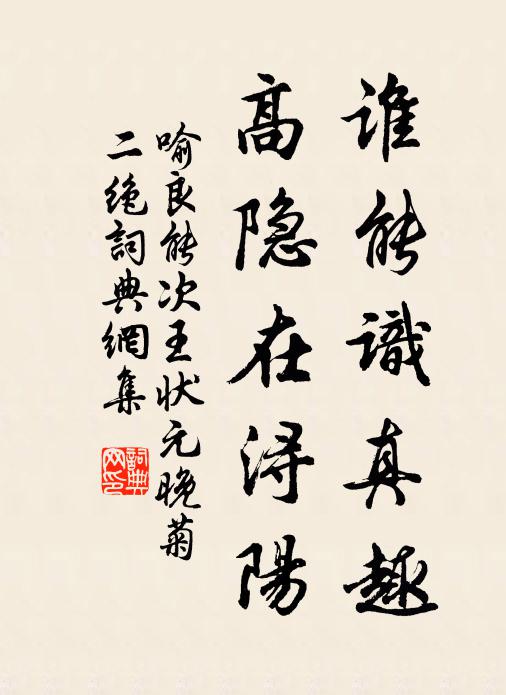 谁能識真趣
高隐在浔陽
喻良能次王状元晚菊
二绝詞典網集
詞典
网印